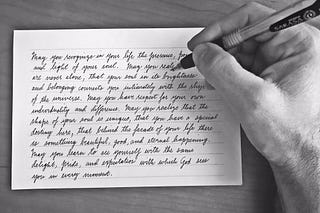 May you recognize in your life the presence, po
and light of your soul. May you realize
are never alone, that your soul in its brightness
and belonging connects you intimately with the rhyt
of the universe. May you have respect for your own
individuality and difference. May you realize that the
shape of your soul is unique, that you have a special
destiny here, that behind the facade of your life there
is something beautiful, good, and eternal happening.
May you learn to see yourself with the same
delight, pride, and expectation with which God sees
you in every moment.